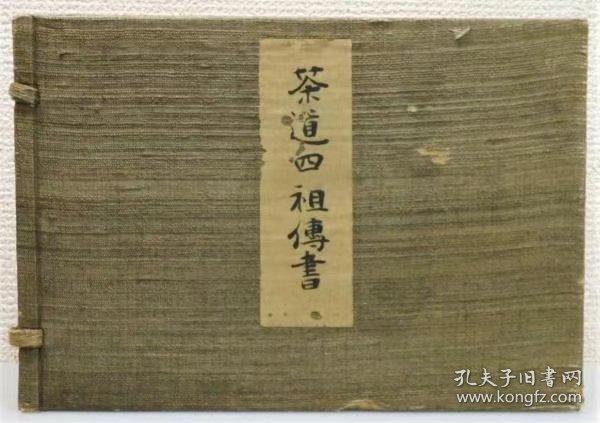 茶道四祖傳書
孔夫子旧书网
www.kongfz.com